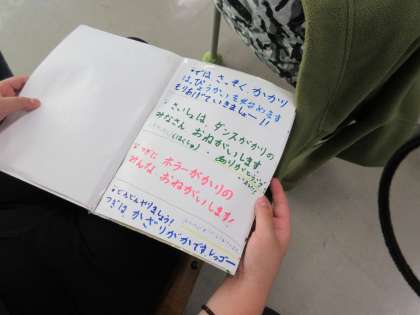 ・では さっそく かかり
はっぴょうかいを始めます
もりあげていきましょー!!
・さいしょは ダンスがかりの
みなさん おねがいします。
(はくしゅ)
・つぎに ホラーがかりの
みんな おねがいします。
・どんどんやりましょう!
つぎは かざりがかりです。レッゴー